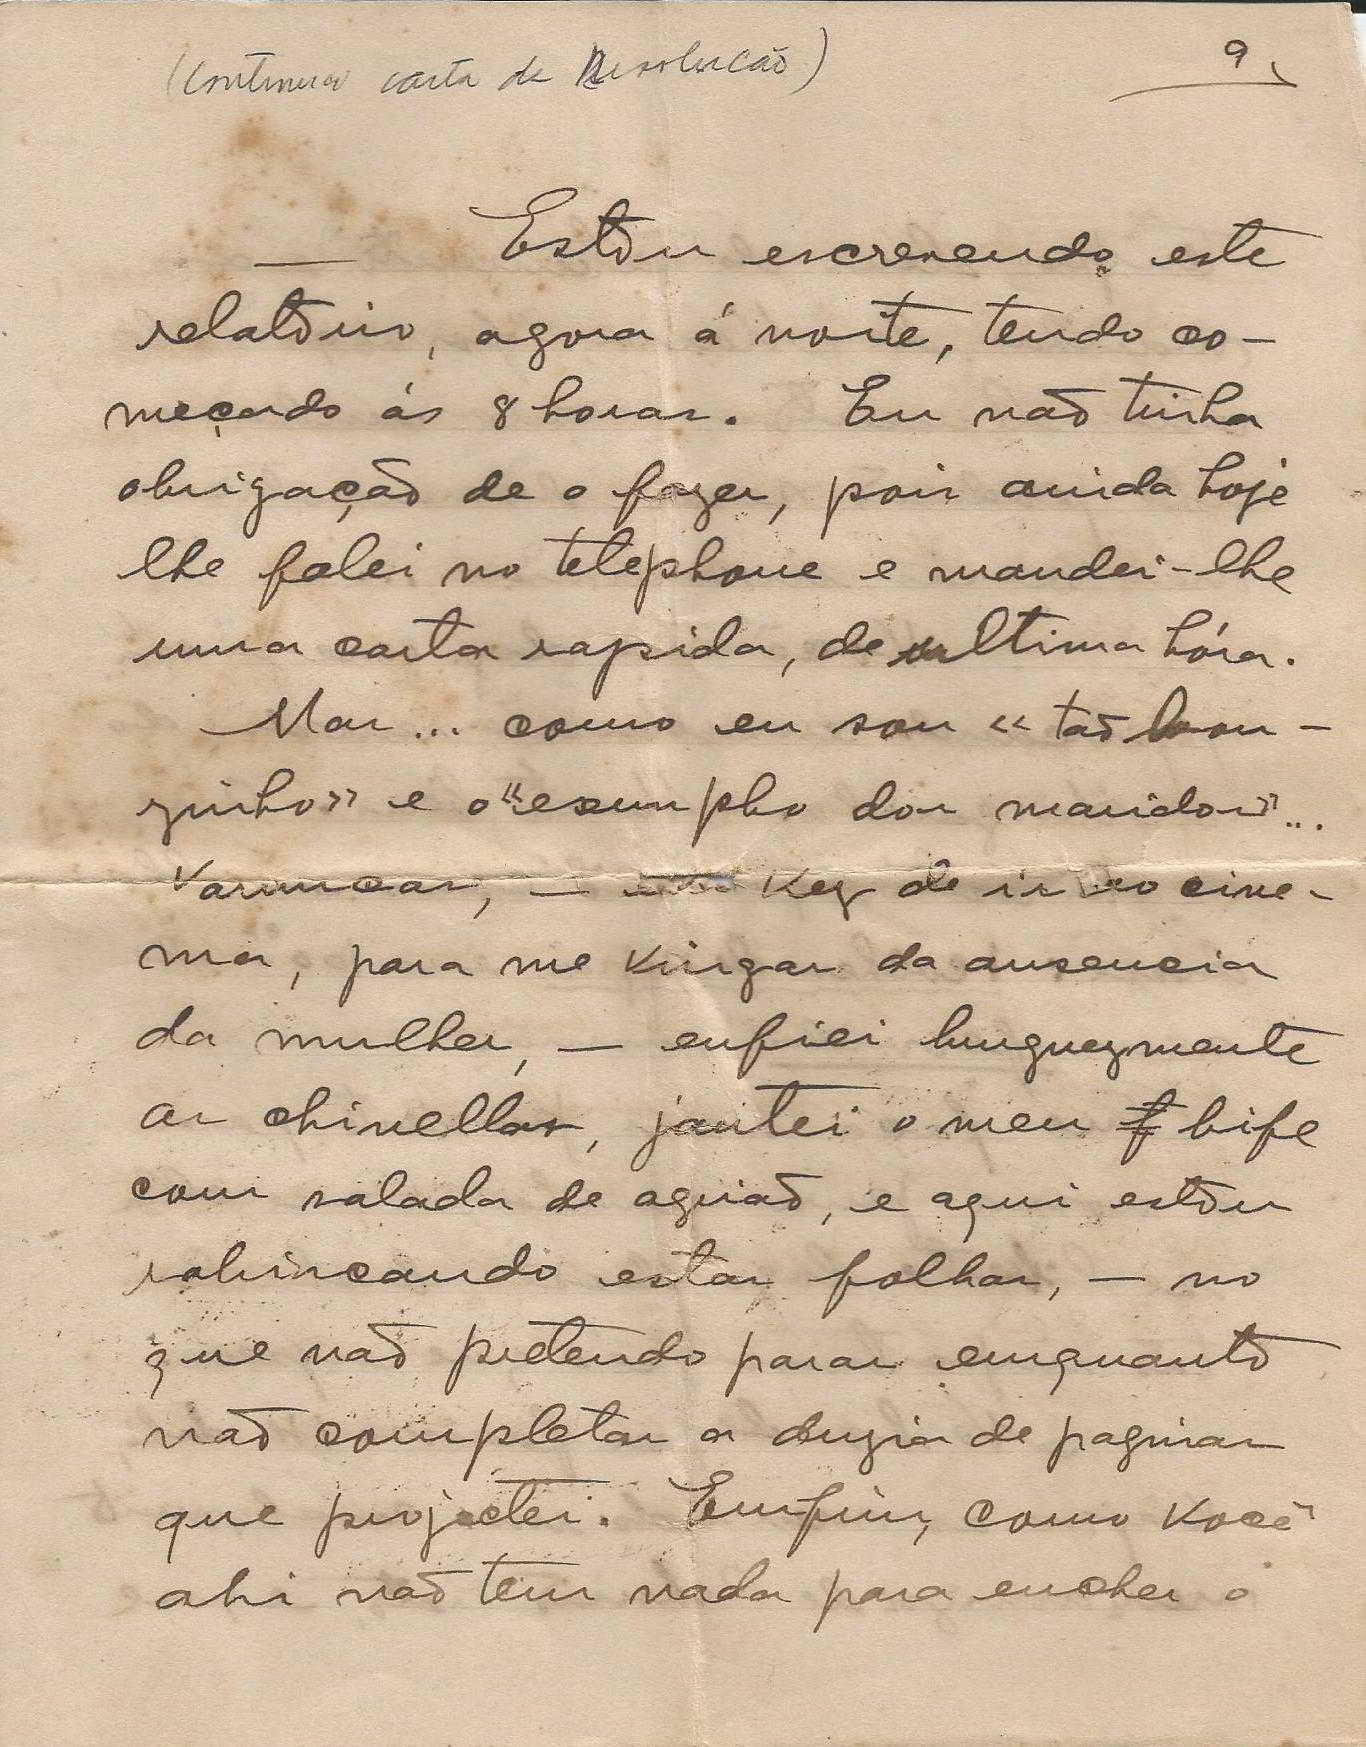 (Continua carta da Revolução)
9
— Estou escrevendo este
relatorio, agora á noite, tendo co-
meçado ás 8 horas. Eu não tinha
obrigação de o fazer, pois ainda hoje
lhe falei no telephone e mandei-lhe
uma carta rapida, de ultima hóra.
Mas... como eu sou « tão bon-
zinho» e o «exemplo dos maridos»...
vez de ir ao cine-
ma, para me vingar da ausencia
da mulher, — enfiei burguezmente
as chinellas, jantei o meu bife
com salada de agrião, e aqui estou
rabiscando estas folhas, — no
que não pretendo parar emquanto
não completar a duzia de paginas
que projectei. Emfim, como você
ahi não tem nada para encher o